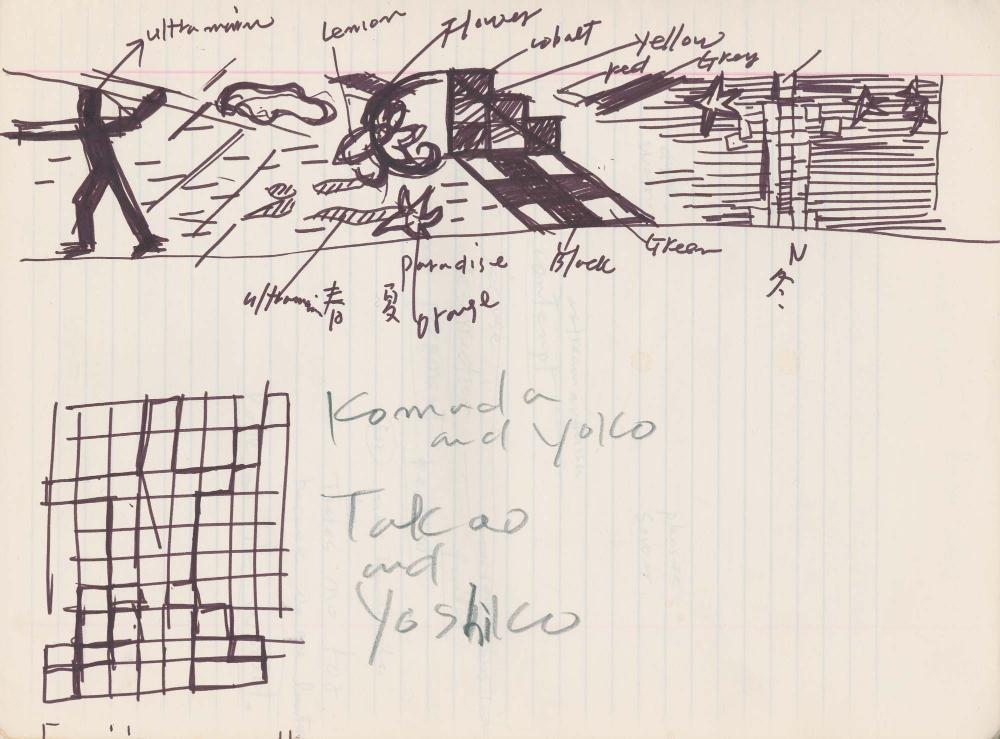 ultramarin
Lemon
Flower
cobalt
yellow
red
Grey
ultramarin
春
夏
paradise
orange
Black
Green
N
冬
Komada
and Yoko
Takao
and
Yoshiko